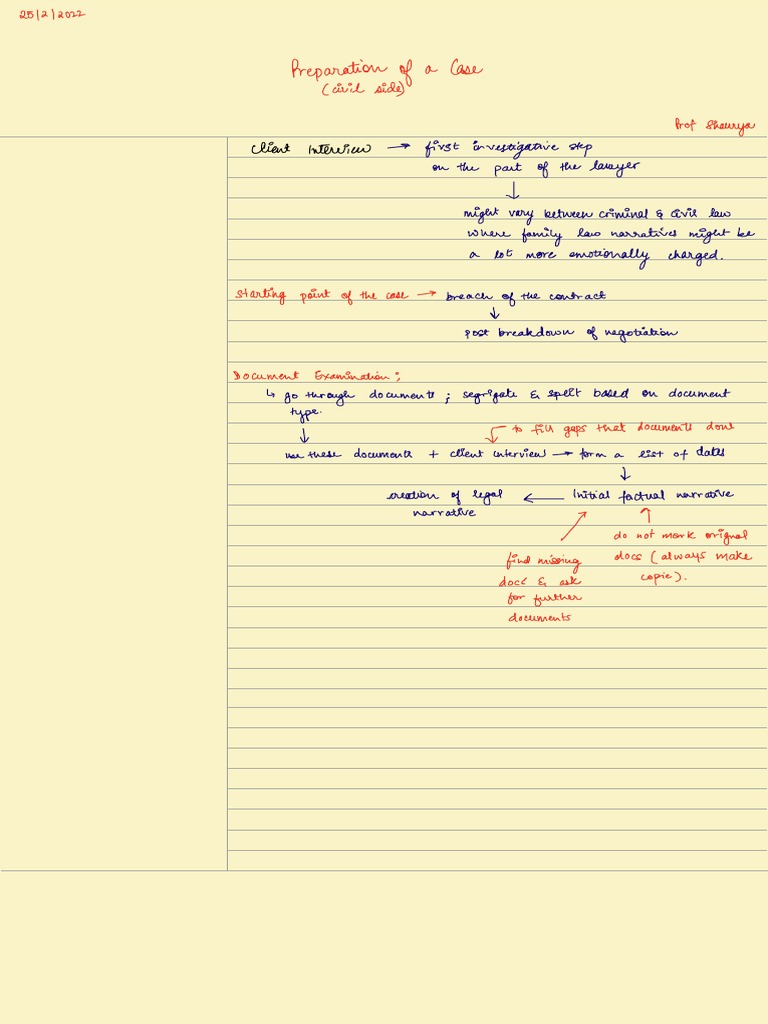 25/2/2022
Preparation of a Case
(civil side)
Prof Shaurya
Client Interview → first investigative step
on the part of the lawyer
↓
might vary between criminal & civil law
where family law narratives might be
a lot more emotionally charged.
Starting point of the case → breach of the contract
↓
post breakdown of negotiation
Document Examination;
↳ go through documents ; segrigate & split based on document
type.
↓
to fill gaps that documents dont
use these documents + client interview → form a list of dates
↓
creation of legal ← Initial factual narrative
narrative
do not mark orignal
docs (always make
copie).
find missing
docs & ask
for further
documents